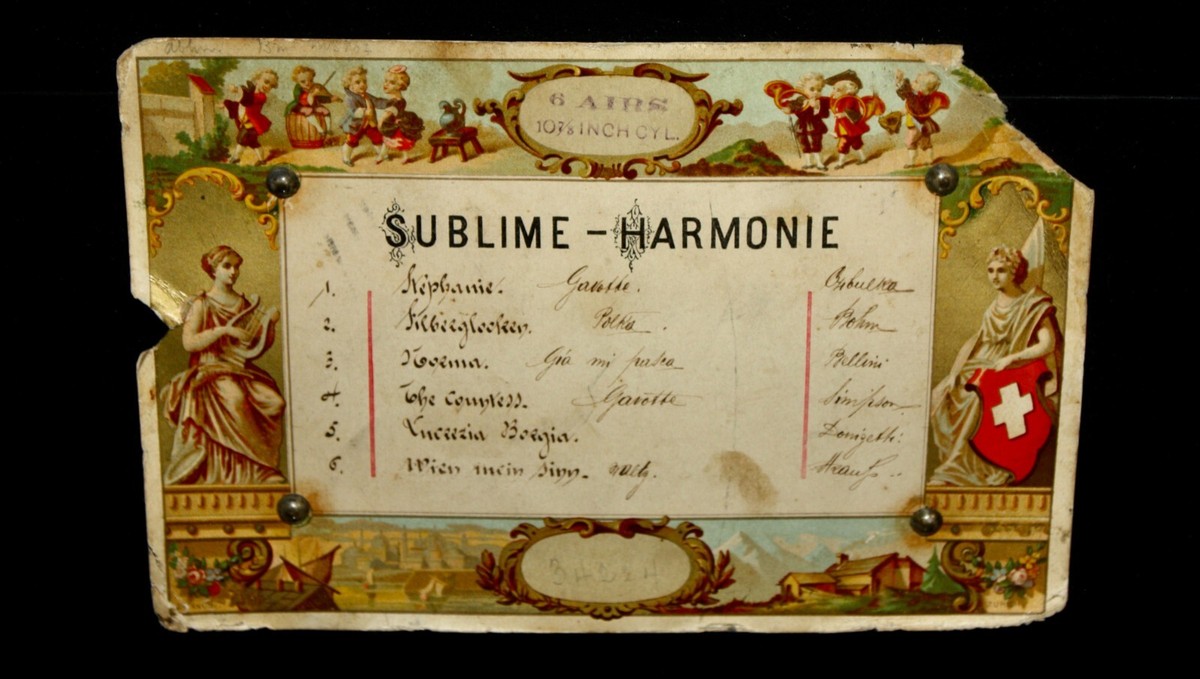 6 AIRS
10⅞ INCH CYL.
SUBLIME-HARMONIE
1. Stéphanie. Gavotte. Czibulka
2. Silberglocken. Polka. Bohm
3. Norma. Gia mi pasca Bellini
4. The Countess. Gavotte Simpson
5. Lucrezia Borgia. Donizetti.
6. Wien mein Sinn. waltz. Strauss